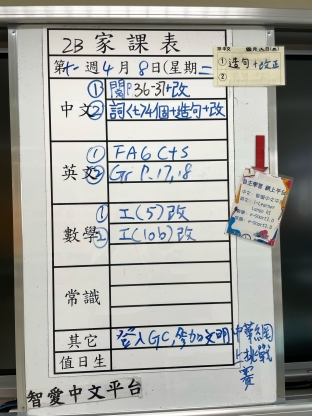 2B 家課表
第十週4月8日(星期二
中文
① 閱P.36-37+改
② 詞〈七〉4個+造句+改
① 造句+改正
②
英文
① FAGC+S
② Gr P.17,18
數學
① 工(5)改
② 工(10b)改
常識
其它
登入GC,參加文明
中華網
上挑戰
賽
值日生
智愛中文平台
自主學習 網上平台